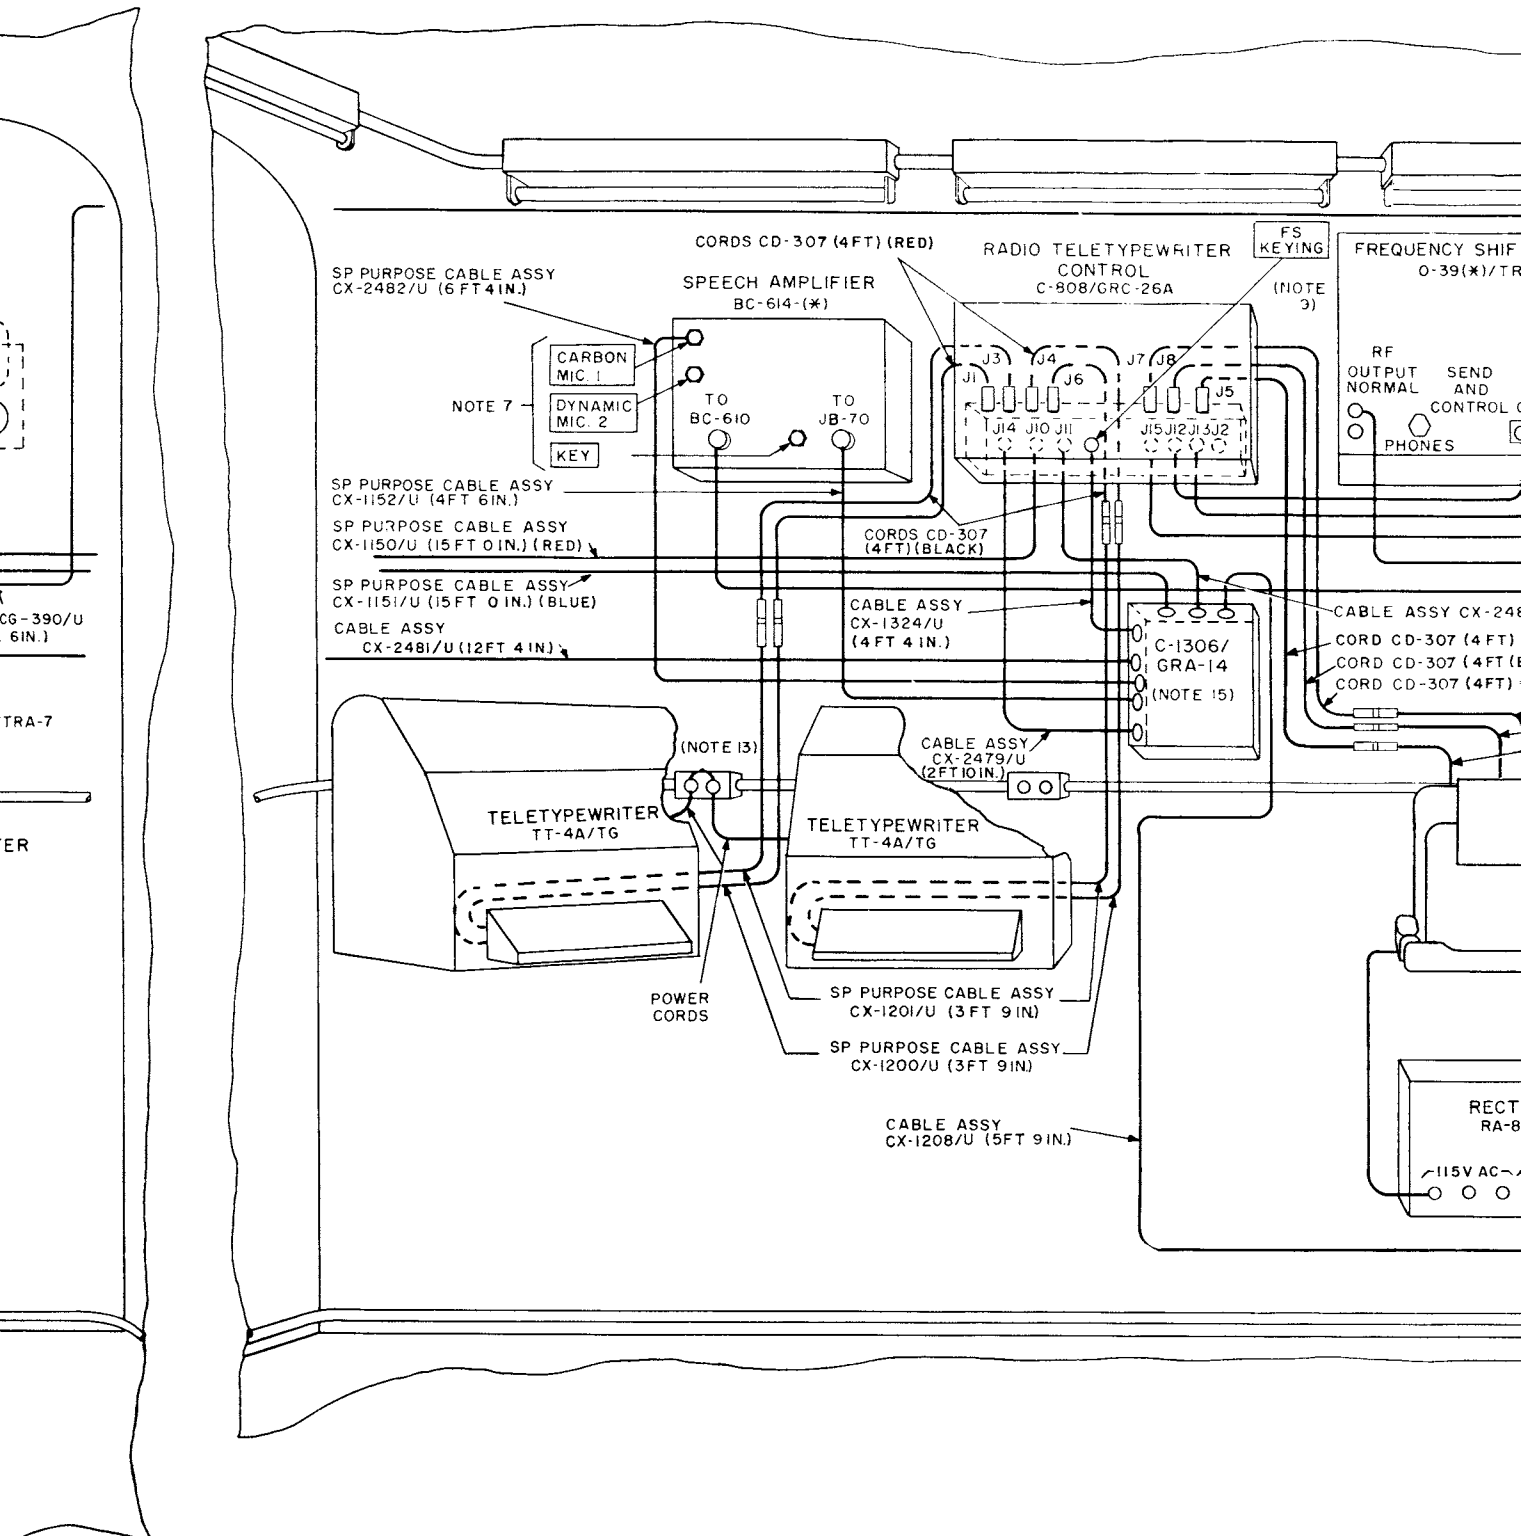 CG-390/U
6IN.)
TRA-7
TER
CORDS CD-307 (4FT) (RED)
SP PURPOSE CABLE ASSY
CX-2482/U (6FT 4IN.)
SPEECH AMPLIFIER
BC-614-(*)
RADIO TELETYPEWRITER
CONTROL
C-808/GRC-26A
FS
KEYING
(NOTE
9)
FREQUENCY SHIF
O-39(*)/TR
NOTE 7
CARBON
MIC. 1
DYNAMIC
MIC. 2
KEY
TO
BC-610
TO
JB-70
J1
J3
J4
J6
J7
J8
J5
J14 J10 J11
J15 J12 J13 J2
RF
OUTPUT
NORMAL
SEND
AND
CONTROL
PHONES
SP PURPOSE CABLE ASSY
CX-1152/U (4FT 6IN.)
SP PURPOSE CABLE ASSY
CX-1150/U (15FT 0IN.) (RED)
SP PURPOSE CABLE ASSY
CX-1151/U (15FT 0IN.) (BLUE)
CABLE ASSY
CX-2481/U (12FT 4IN.)
CORDS CD-307
(4FT) (BLACK)
CABLE ASSY
CX-1324/U
(4FT 4IN.)
C-1306/
GRA-14
(NOTE 15)
CABLE ASSY CX-248
CORD CD-307 (4FT)
CORD CD-307 (4FT (
CORD CD-307 (4FT)
(NOTE 13)
CABLE ASSY
CX-2479/U
(2FT 10IN.)
TELETYPEWRITER
TT-4A/TG
TELETYPEWRITER
TT-4A/TG
POWER
CORDS
SP PURPOSE CABLE ASSY
CX-1201/U (3FT 9IN)
SP PURPOSE CABLE ASSY
CX-1200/U (3FT 9IN.)
CABLE ASSY
CX-1208/U (5FT 9IN.)
RECT
RA-8
115V AC